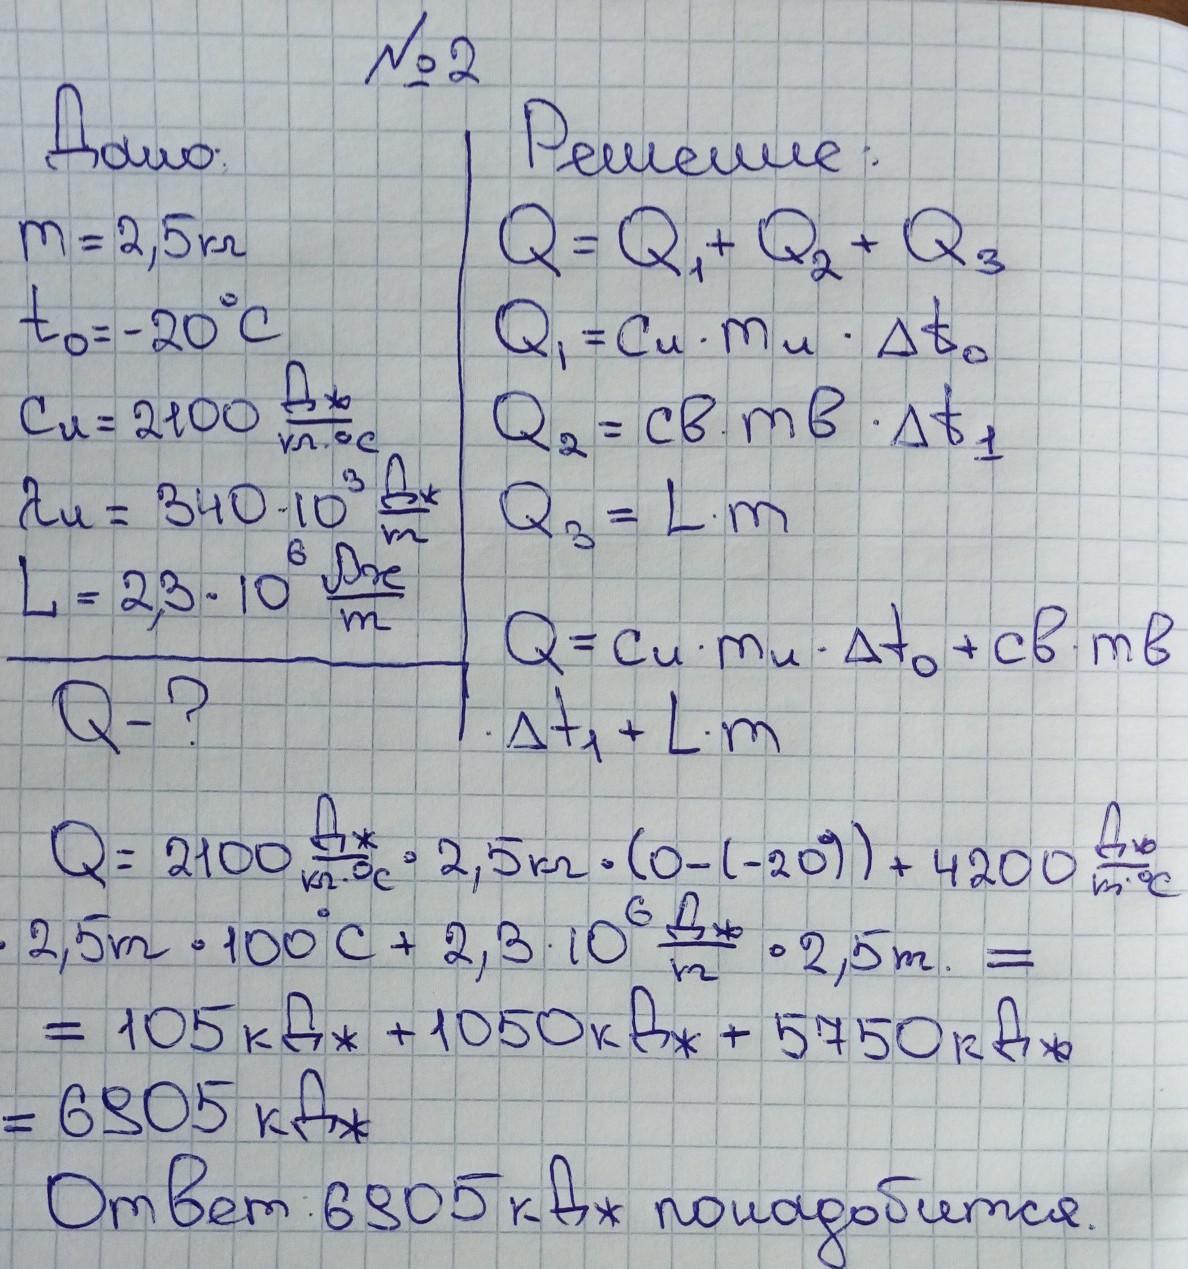 №2
Дано:
m = 2,5кг
t₀ = -20°C
Cл = 2100 Дж/кг·°C
λл = 340·10³ Дж/кг
L = 2,3·10⁶ Дж/m
Q - ?
Решение:
Q = Q₁ + Q₂ + Q₃
Q₁ = Cл · mл · Δt₀
Q₂ = cв · mв · Δt₁
Q₃ = L · m
Q = Cл · mл · Δt₀ + cв · mв
· Δt₁ + L · m
Q = 2100 Дж/кг·°C · 2,5кг · (0-(-20°)) + 4200 Дж/m·°C
· 2,5m · 100°C + 2,3·10⁶ Дж/кг · 2,5m. =
= 105 кДж + 1050 кДж + 5750 кДж
= 6905 кДж
Ответ: 6905 кДж понадобится.